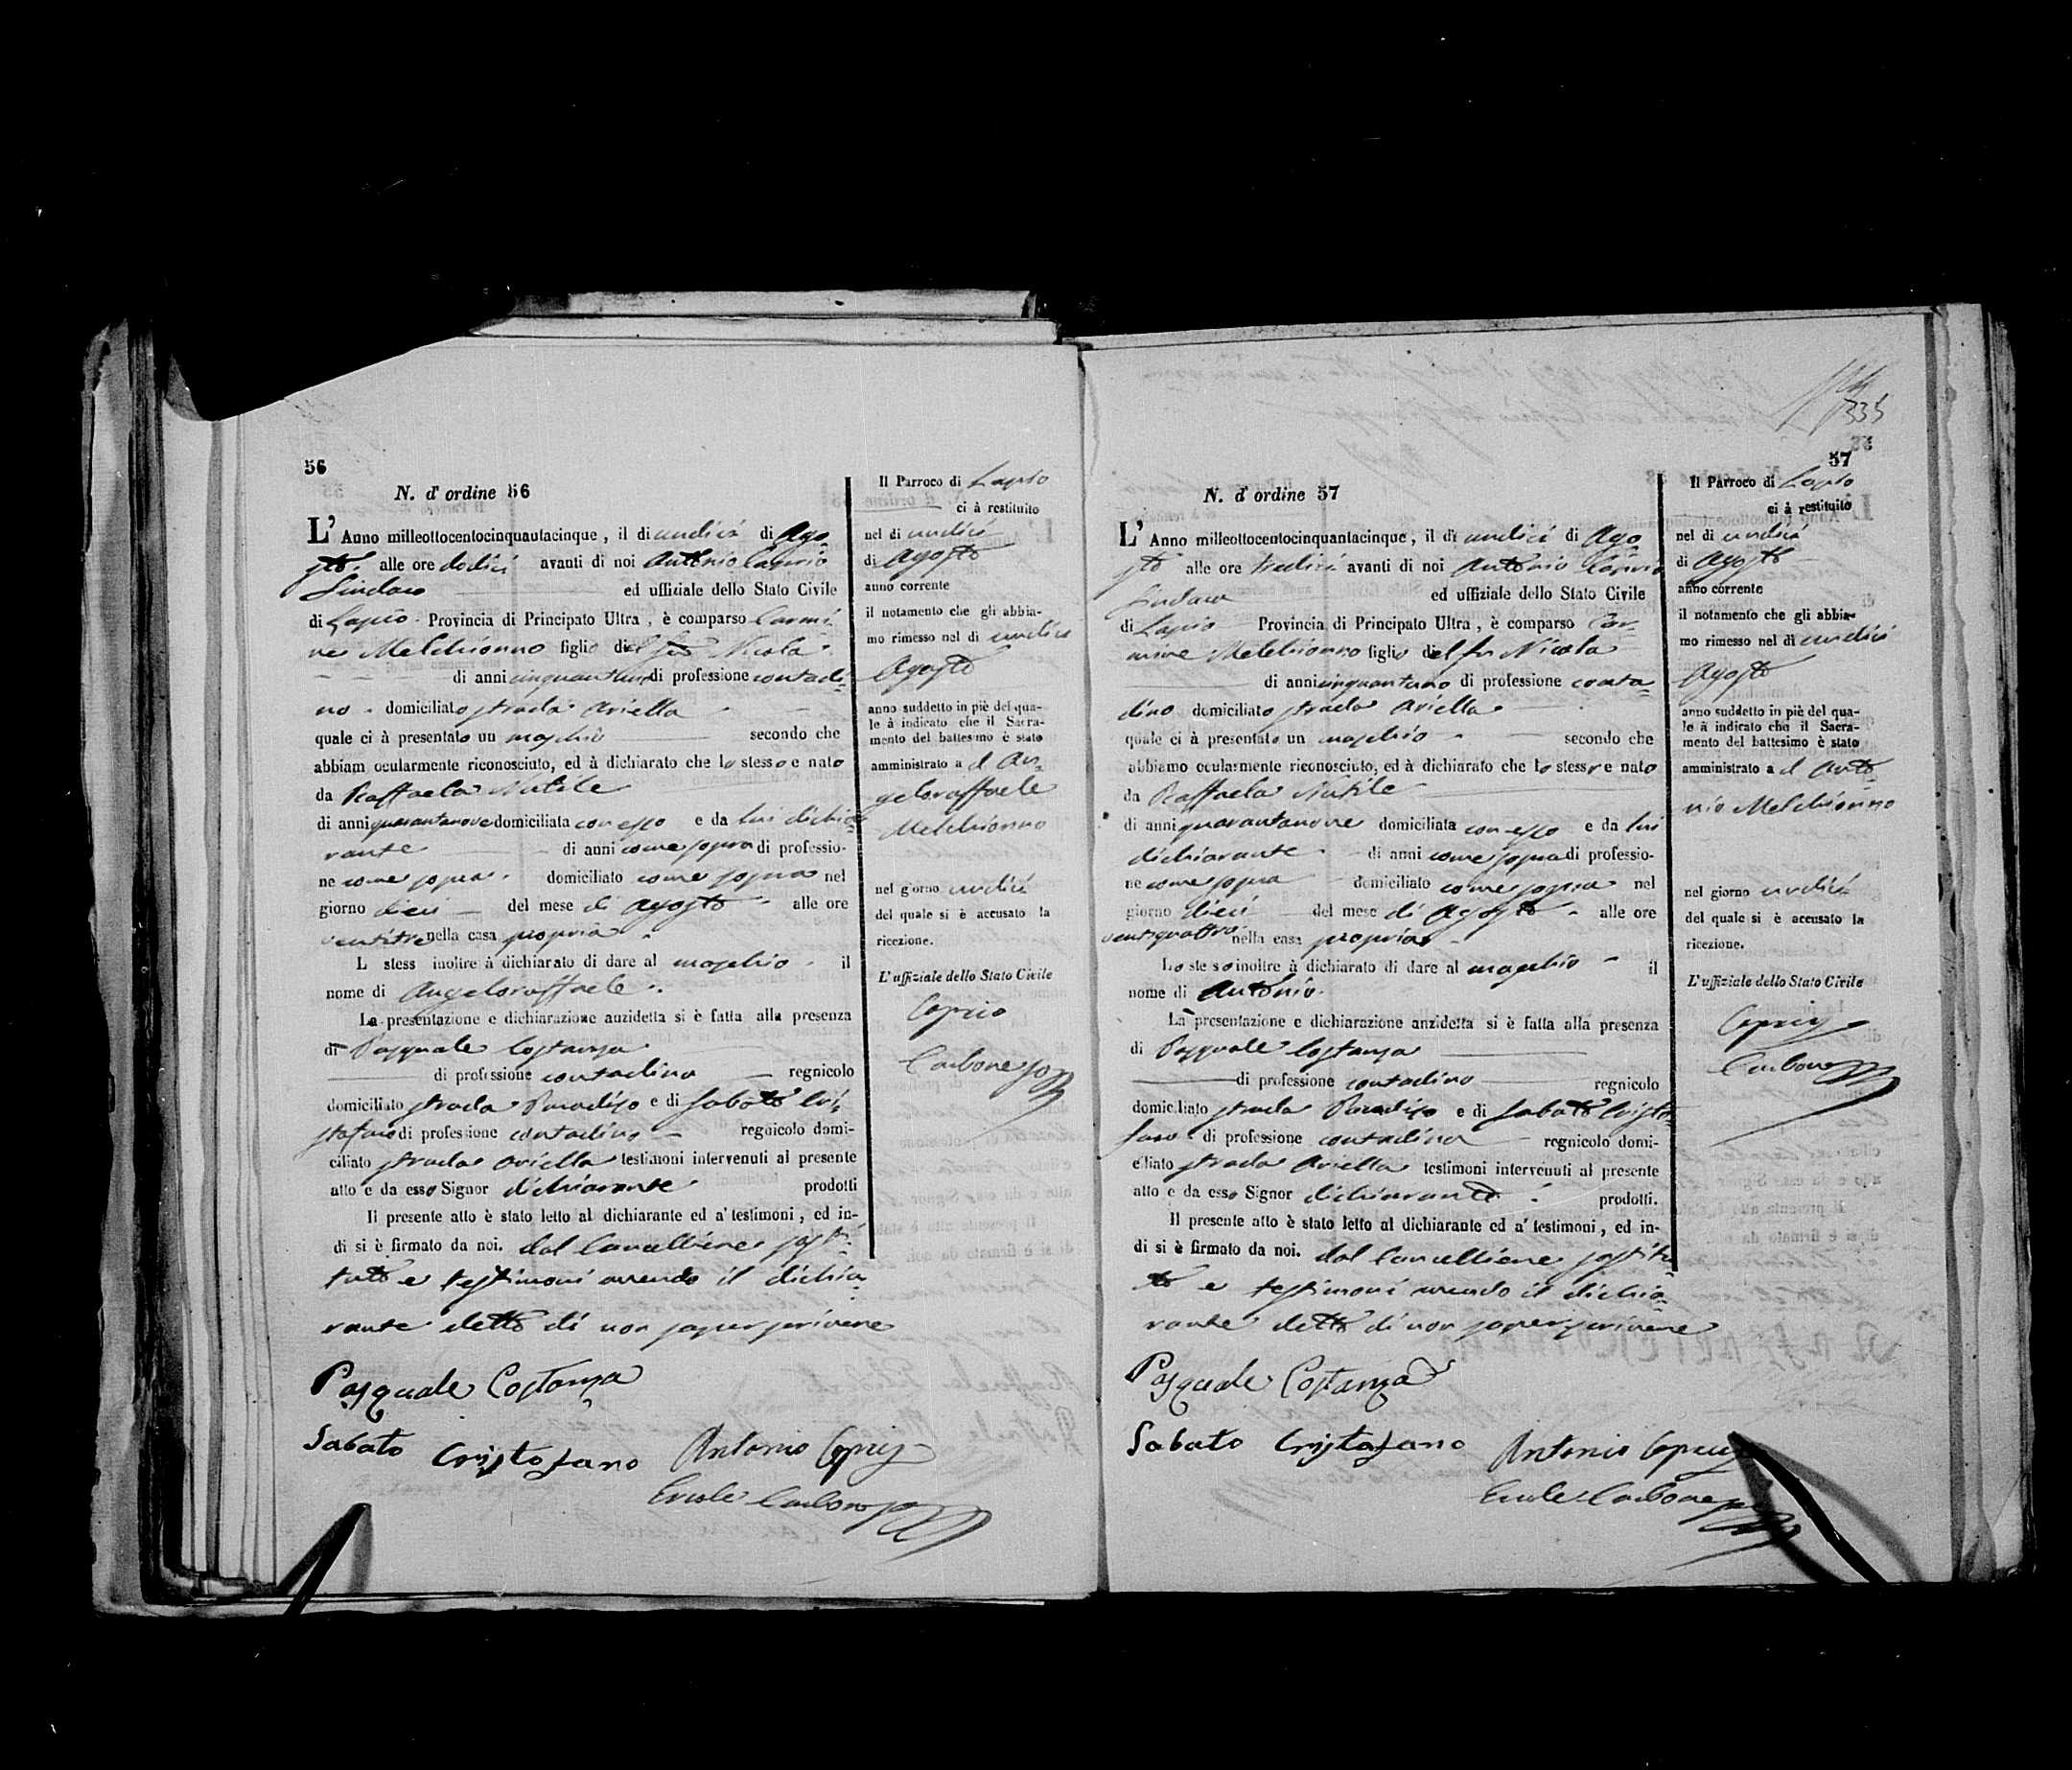 56
N. d' ordine 56
L' Anno milleottocentocinquantacinque, il dì undici di Ago-
sto alle ore dodici avanti di noi Antonio Caprio
Sindaco ed uffiziale dello Stato Civile
di Lapio Provincia di Principato Ultra, è comparso Carmi-
ne Melchionno figlio del fu Nicola
di anni cinquantuno di professione contadi-
no domiciliato strada Ariella
quale ci à presentato un maschio secondo che
abbiam ocularmente riconosciuto, ed à dichiarato che lo stesso e nato
da Raffaela Nutile
di anni quarantanove domiciliata con esso e da lui dichia-
rante di anni come sopra di professio-
ne come sopra domiciliato come sopra nel
giorno dieci del mese di Agosto alle ore
ventitre nella casa propria
L stess inoltre à dichiarato di dare al maschio il
nome di Angeloraffaele
La presentazione e dichiarazione anzidetta si è fatta alla presenza
di Pasquale Costanza
di professione contadino regnicolo
domiciliato strada Paradiso e di Sabato Cri-
stofano di professione contadino regnicolo domi-
ciliato strada Ariella testimoni intervenuti al presente
atto e da esso Signor dichiarante prodotti
Il presente atto è stato letto al dichiarante ed a' testimoni, ed in-
di si è firmato da noi. dal Cancelliere sosti-
tuto e testimoni avendo il dichia-
rante detto di non saper scrivere
Pasquale Costanza
Sabato Cristofano Antonio Caprio
Ercole Carbone
Il Parroco di Lapio
ci à restituito
nel dì undici
di Agosto
anno corrente
il notamento che gli abbia-
mo rimesso nel dì undici
Agosto
anno suddetto in piè del qua-
le à indicato che il Sacra-
mento del battesimo è stato
amministrato a d An-
geloraffaele
Melchionno
nel giorno undici
del quale si è accusato la
ricezione.
L'uffiziale dello Stato Civile
Caprio
Carbone
335
57
N. d' ordine 57
L' Anno milleottocentocinquantacinque, il dì undici di Ago-
sto alle ore tredici avanti di noi Antonio Caprio
Sindaco ed uffiziale dello Stato Civile
di Lapio Provincia di Principato Ultra, è comparso Car-
mine Melchionno figlio del fu Nicola
di anni cinquantuno di professione conta-
dino domiciliato strada Ariella
quale ci à presentato un maschio secondo che
abbiamo ocularmente riconosciuto, ed à dichiarato che lo stesso e nato
da Raffaela Nutile
di anni quarantanove domiciliata con esso e da lui
dichiarante di anni come sopra di professio-
ne come sopra domiciliato come sopra nel
giorno dieci del mese di Agosto alle ore
ventiquattro nella casa propria
Lo stesso inoltre à dichiarato di dare al maschio il
nome di Antonio.
La presentazione e dichiarazione anzidetta si è fatta alla presenza
di Pasquale Costanza
di professione contadino regnicolo
domiciliato strada Paradiso e di Sabato Cristo-
fano di professione contadino regnicolo domi-
ciliato strada Ariella testimoni intervenuti al presente
atto e da esso Signor dichiarante prodotti.
Il presente atto è stato letto al dichiarante ed a' testimoni, ed in-
di si è firmato da noi. dal Cancelliere sostitu-
to e testimoni avendo il dichia-
rante detto di non saper scrivere
Pasquale Costanza
Sabato Cristofano Antonio Caprio
Ercole Carbone
Il Parroco di Lapio
ci à restituito
nel dì undici
di Agosto
anno corrente
il notamento che gli abbia-
mo rimesso nel dì undici
Agosto
anno suddetto in piè del qua-
le à indicato che il Sacra-
mento del battesimo è stato
amministrato a d Anto-
nio Melchionno
nel giorno undici
del quale si è accusato la
ricezione.
L'uffiziale dello Stato Civile
Caprio
Carbone